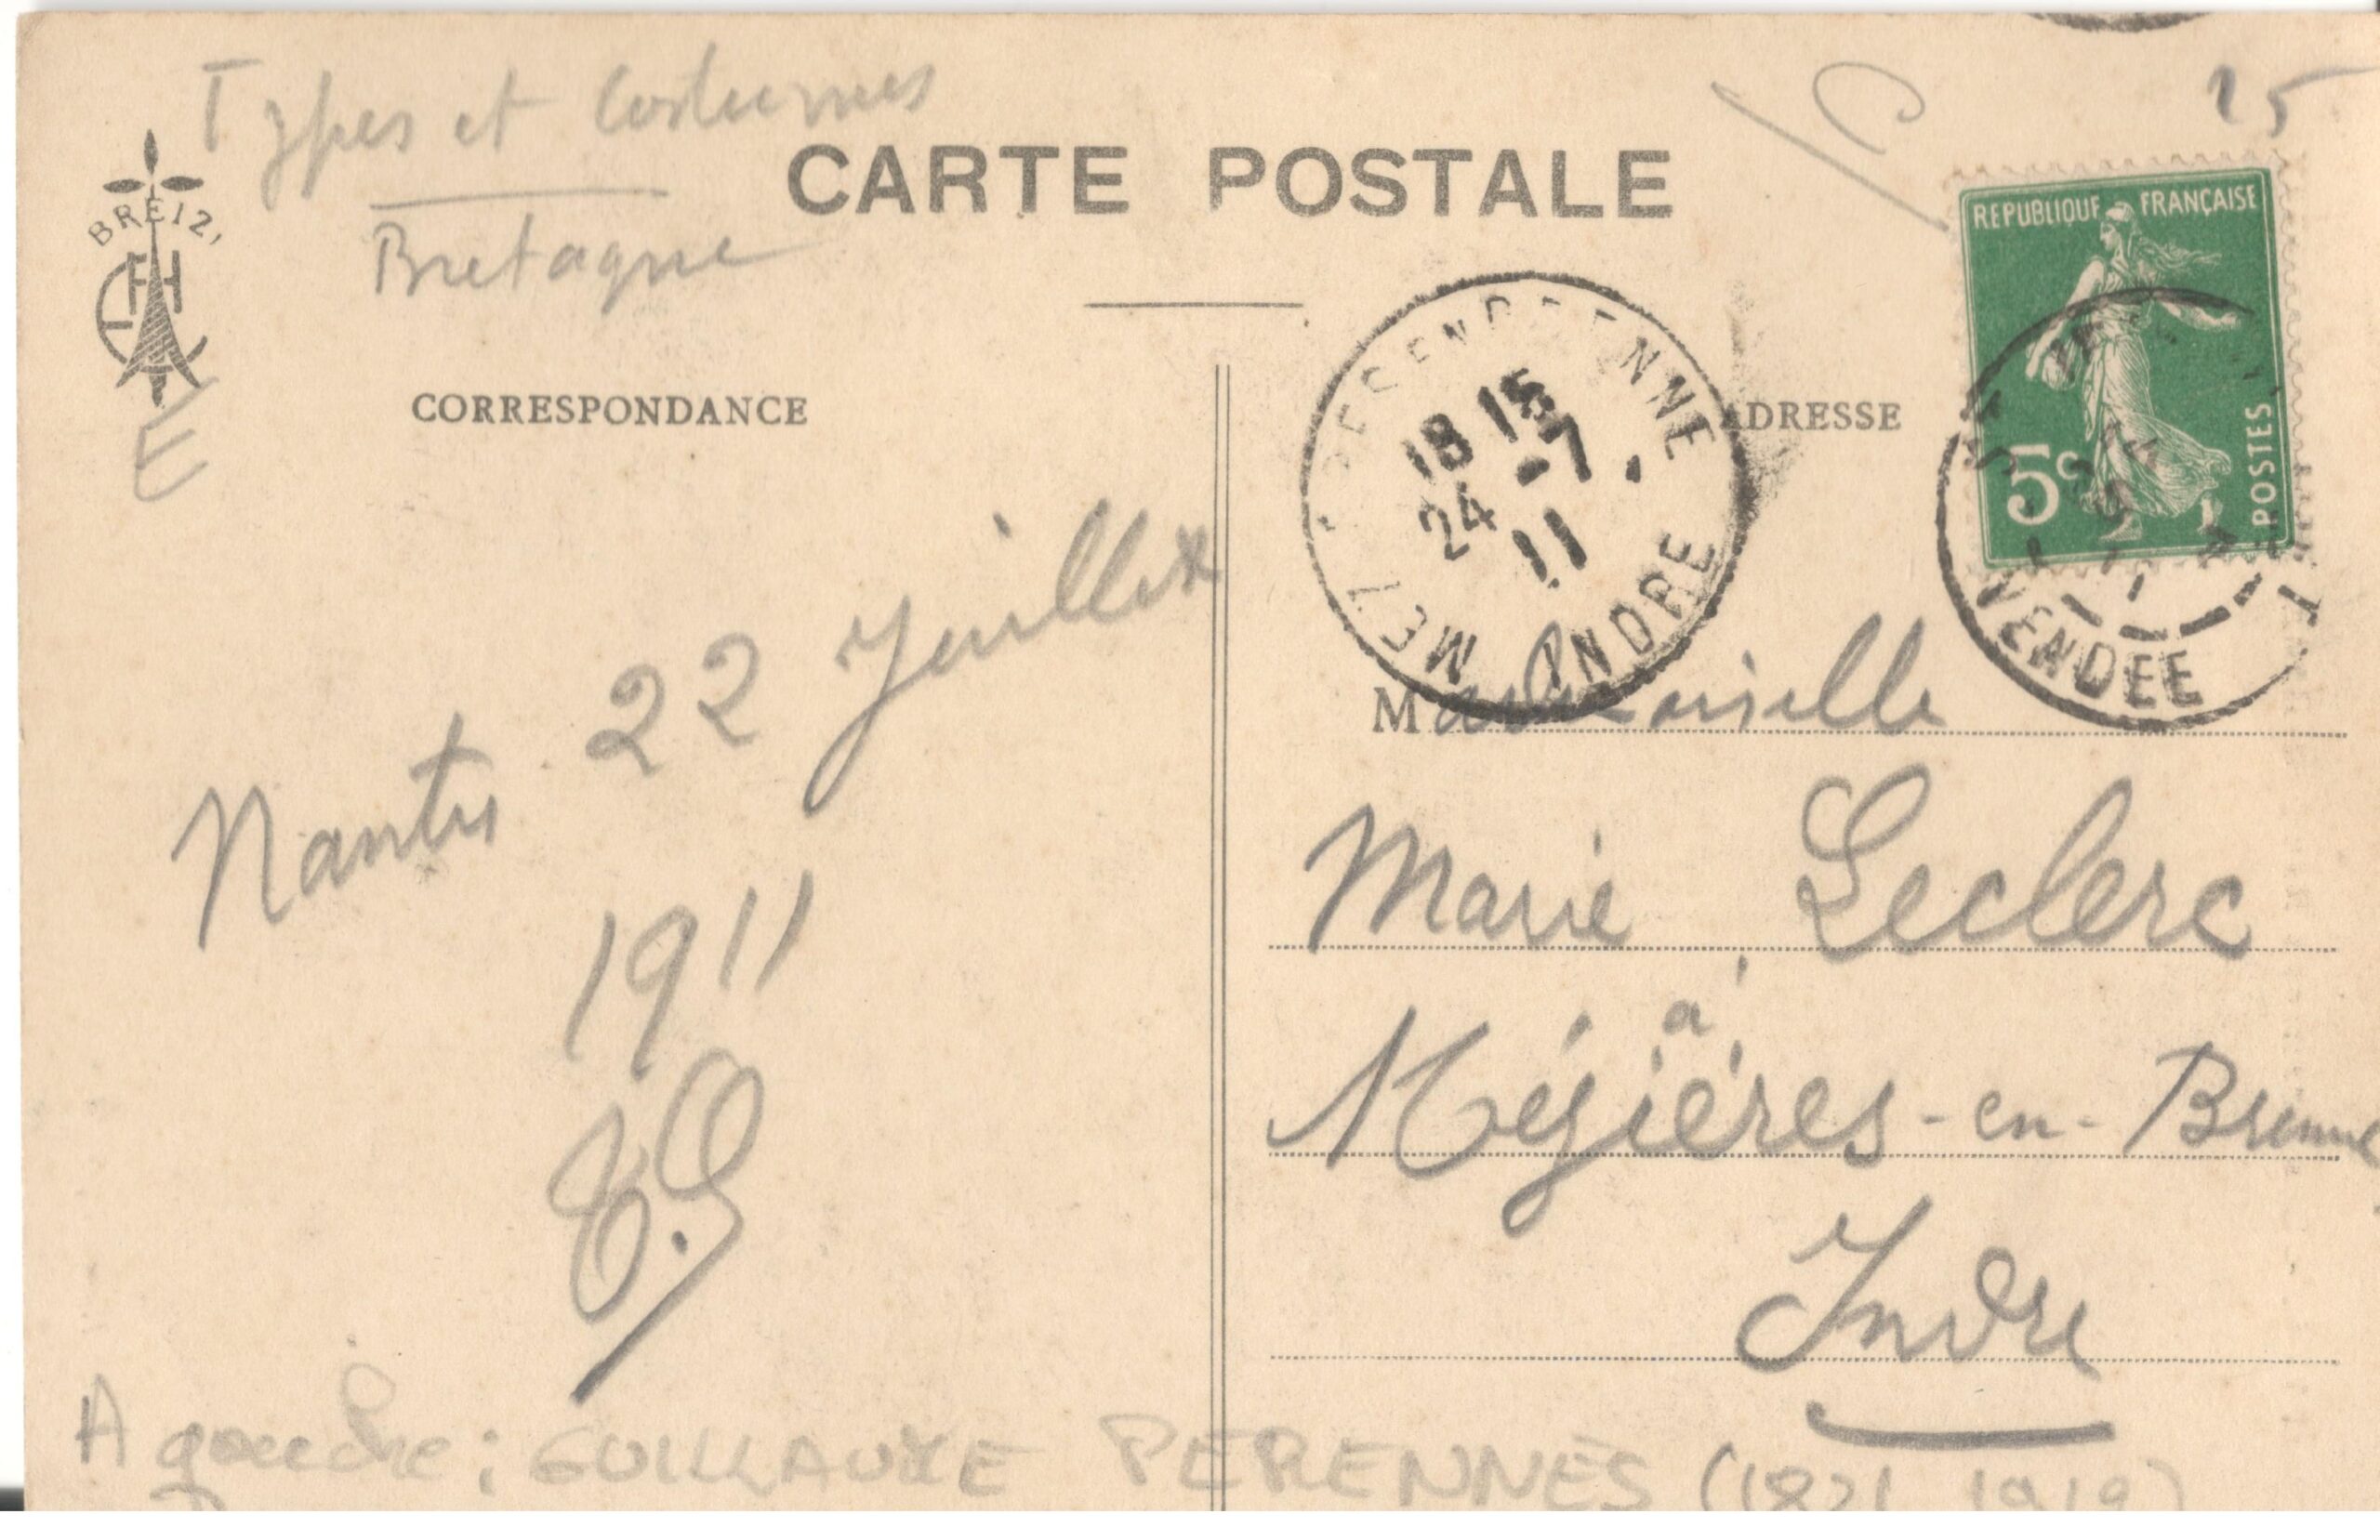 Types et Costumes
Bretagne
15
BREIZ
EHA
CARTE POSTALE
REPUBLIQUE FRANÇAISE
5c
POSTES
E
CORRESPONDANCE
ADRESSE
18 15
24 -7
11
INDRE
VENDEE
Nantes 22 Juillet
1911
E.G
Mademoiselle
Marie Leclerc
à
Mézières-en-Brenne
Indre
A gauche : GUILLAUME PERENNES